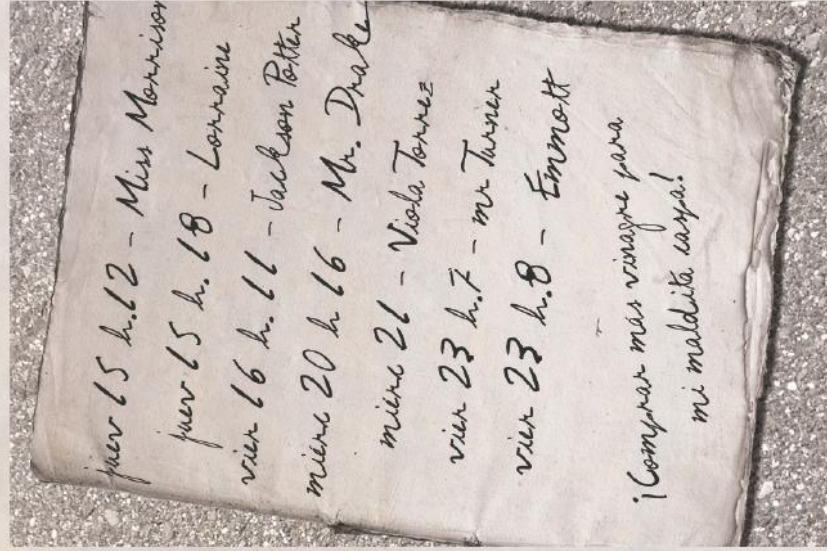 juev 15 h.12 - Miss Morrison
juev 15 h.18 - Lorraine
vier 16 h.11 - Jackson Potter
mierc 20 h 16 - Mr. Drake
mierc 21 - Viola Torrez
vier 23 h.7 - mr Turner
vier 23 h.8 - Emmott
¡Comprar más vinagre para
mi maldita caspa!